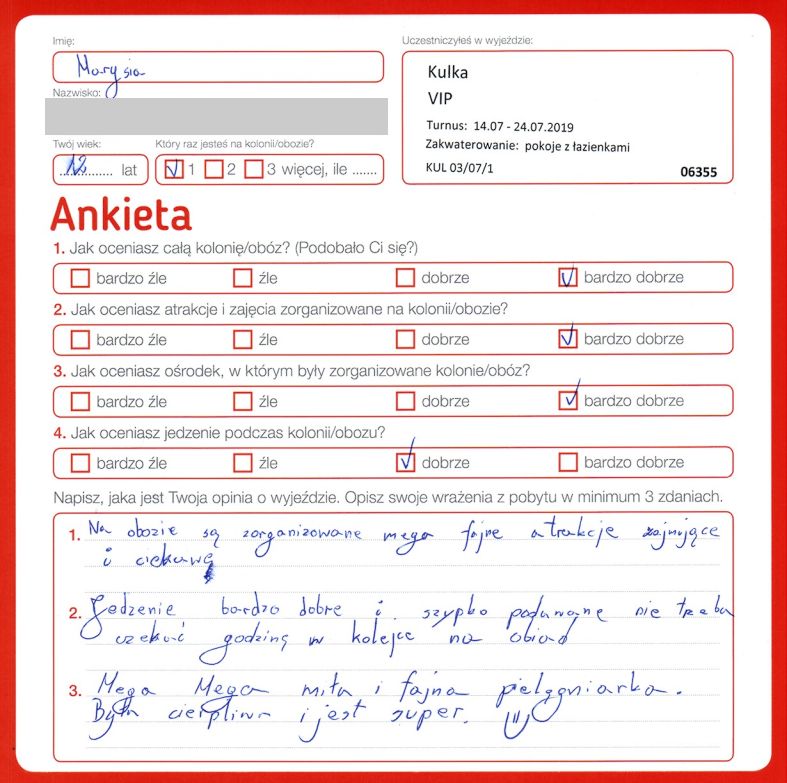 Imię:
Uczestniczyłeś w wyjeździe:
Marysia
Kulka
VIP
Nazwisko:
Turnus: 14.07 - 24.07.2019
Zakwaterowanie: pokoje z łazienkami
KUL 03/07/1
06355
Twój wiek:
Który raz jesteś na kolonii/obozie?
12 lat
1 2 3 więcej, ile .......
Ankieta
1. Jak oceniasz całą kolonię/obóz? (Podobało Ci się?)
bardzo źle źle dobrze bardzo dobrze
2. Jak oceniasz atrakcje i zajęcia zorganizowane na kolonii/obozie?
bardzo źle źle dobrze bardzo dobrze
3. Jak oceniasz ośrodek, w którym były zorganizowane kolonie/obóz?
bardzo źle źle dobrze bardzo dobrze
4. Jak oceniasz jedzenie podczas kolonii/obozu?
bardzo źle źle dobrze bardzo dobrze
Napisz, jaka jest Twoja opinia o wyjeździe. Opisz swoje wrażenia z pobytu w minimum 3 zdaniach.
1. Na obozie są zorganizowane mega fajne atrakcje zajmujące
i ciekawe
2. Jedzenie bardzo dobre i szypko podawane nie trzeba
czekać godzinę w kolejce na obiad
3. Mega Mega miła i fajna pielęgniarka.
Była cierpliwa i jest super.